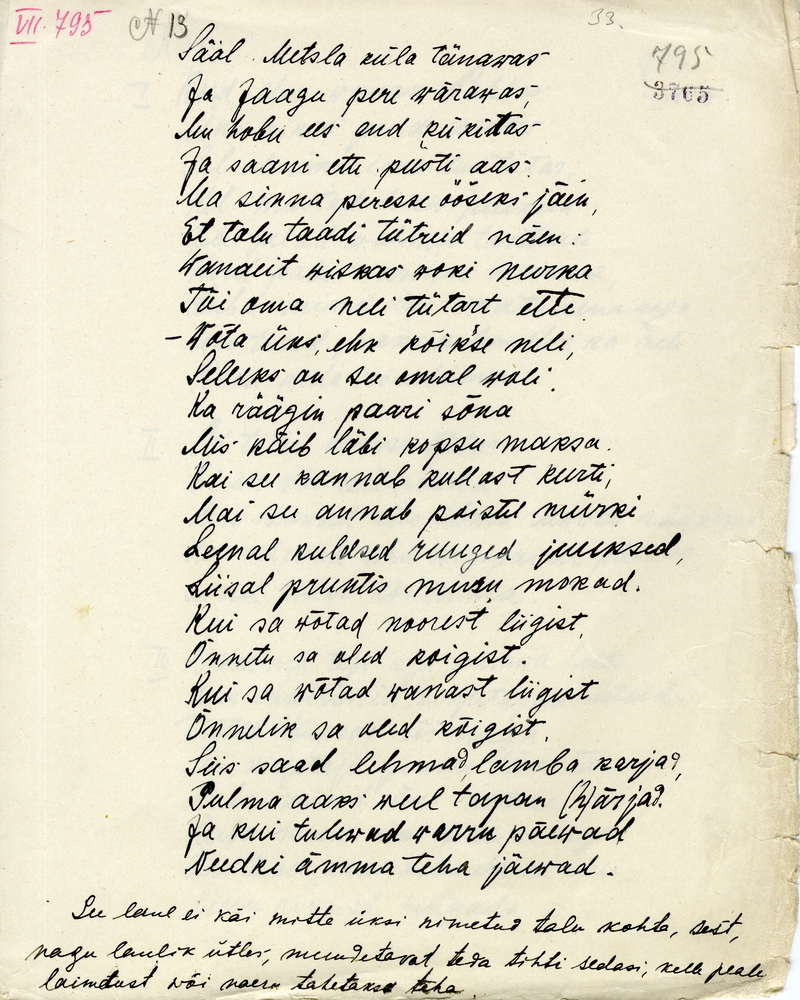 VII. 795 № 13 33.
795
3765
Sääl Metsla küla tänawas
Ja Jaagu pere wärawas,
Mu hobu ees end kükitas
Ja saani ette püsti aas.
Ma sinna peresse ööseks jäin,
Et talu taadi tütreid näen:
Wanaeit wiskas woki nurka
Tõi oma neli tütart ette
– Wõta üks, ehk kõik se neli,
Selleks on su omal woli.
Ka räägin paari sõna
Mis käib läbi kopsu maksa.
Kai su kannab kullast kurti,
Mai su annab poistel mürki
Leenal kuldsed ruuged juuksed,
Liisal pruntis muisu mokad.
Kui sa wõtad noorest liigist,
Õnnetu sa oled koigist.
Kui sa wõtad wanast liigist
Õnnelik sa oled kõigist.
Siis saad lehmad, lamba karjad,
Pulma aaks weel tapan (h)ärjad.
Ja kui tulewad warru päewad
Needki ämma teha jäewad.
See laul ei käi mitte üksi nimetud talu kohta, sest,
nagu laulik ütles, muudetavat teda tihti sedasi, kelle peale
laimdust wõi naeru tahetakse teha.